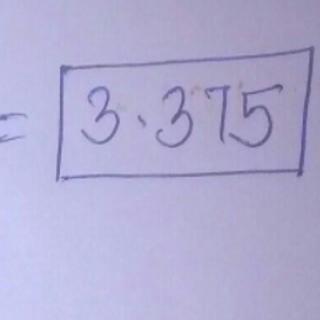 = 3.375